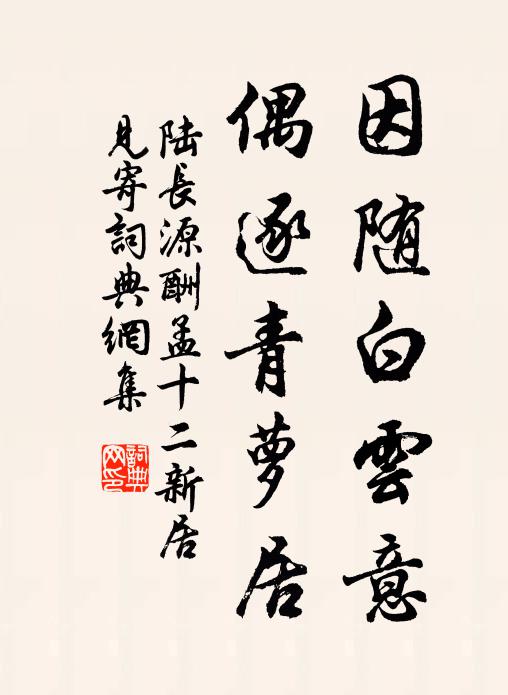 因随白雲意
偶逐青萝居
陆長源酬孟十二新居
見寄詞典網集
詞典
网印